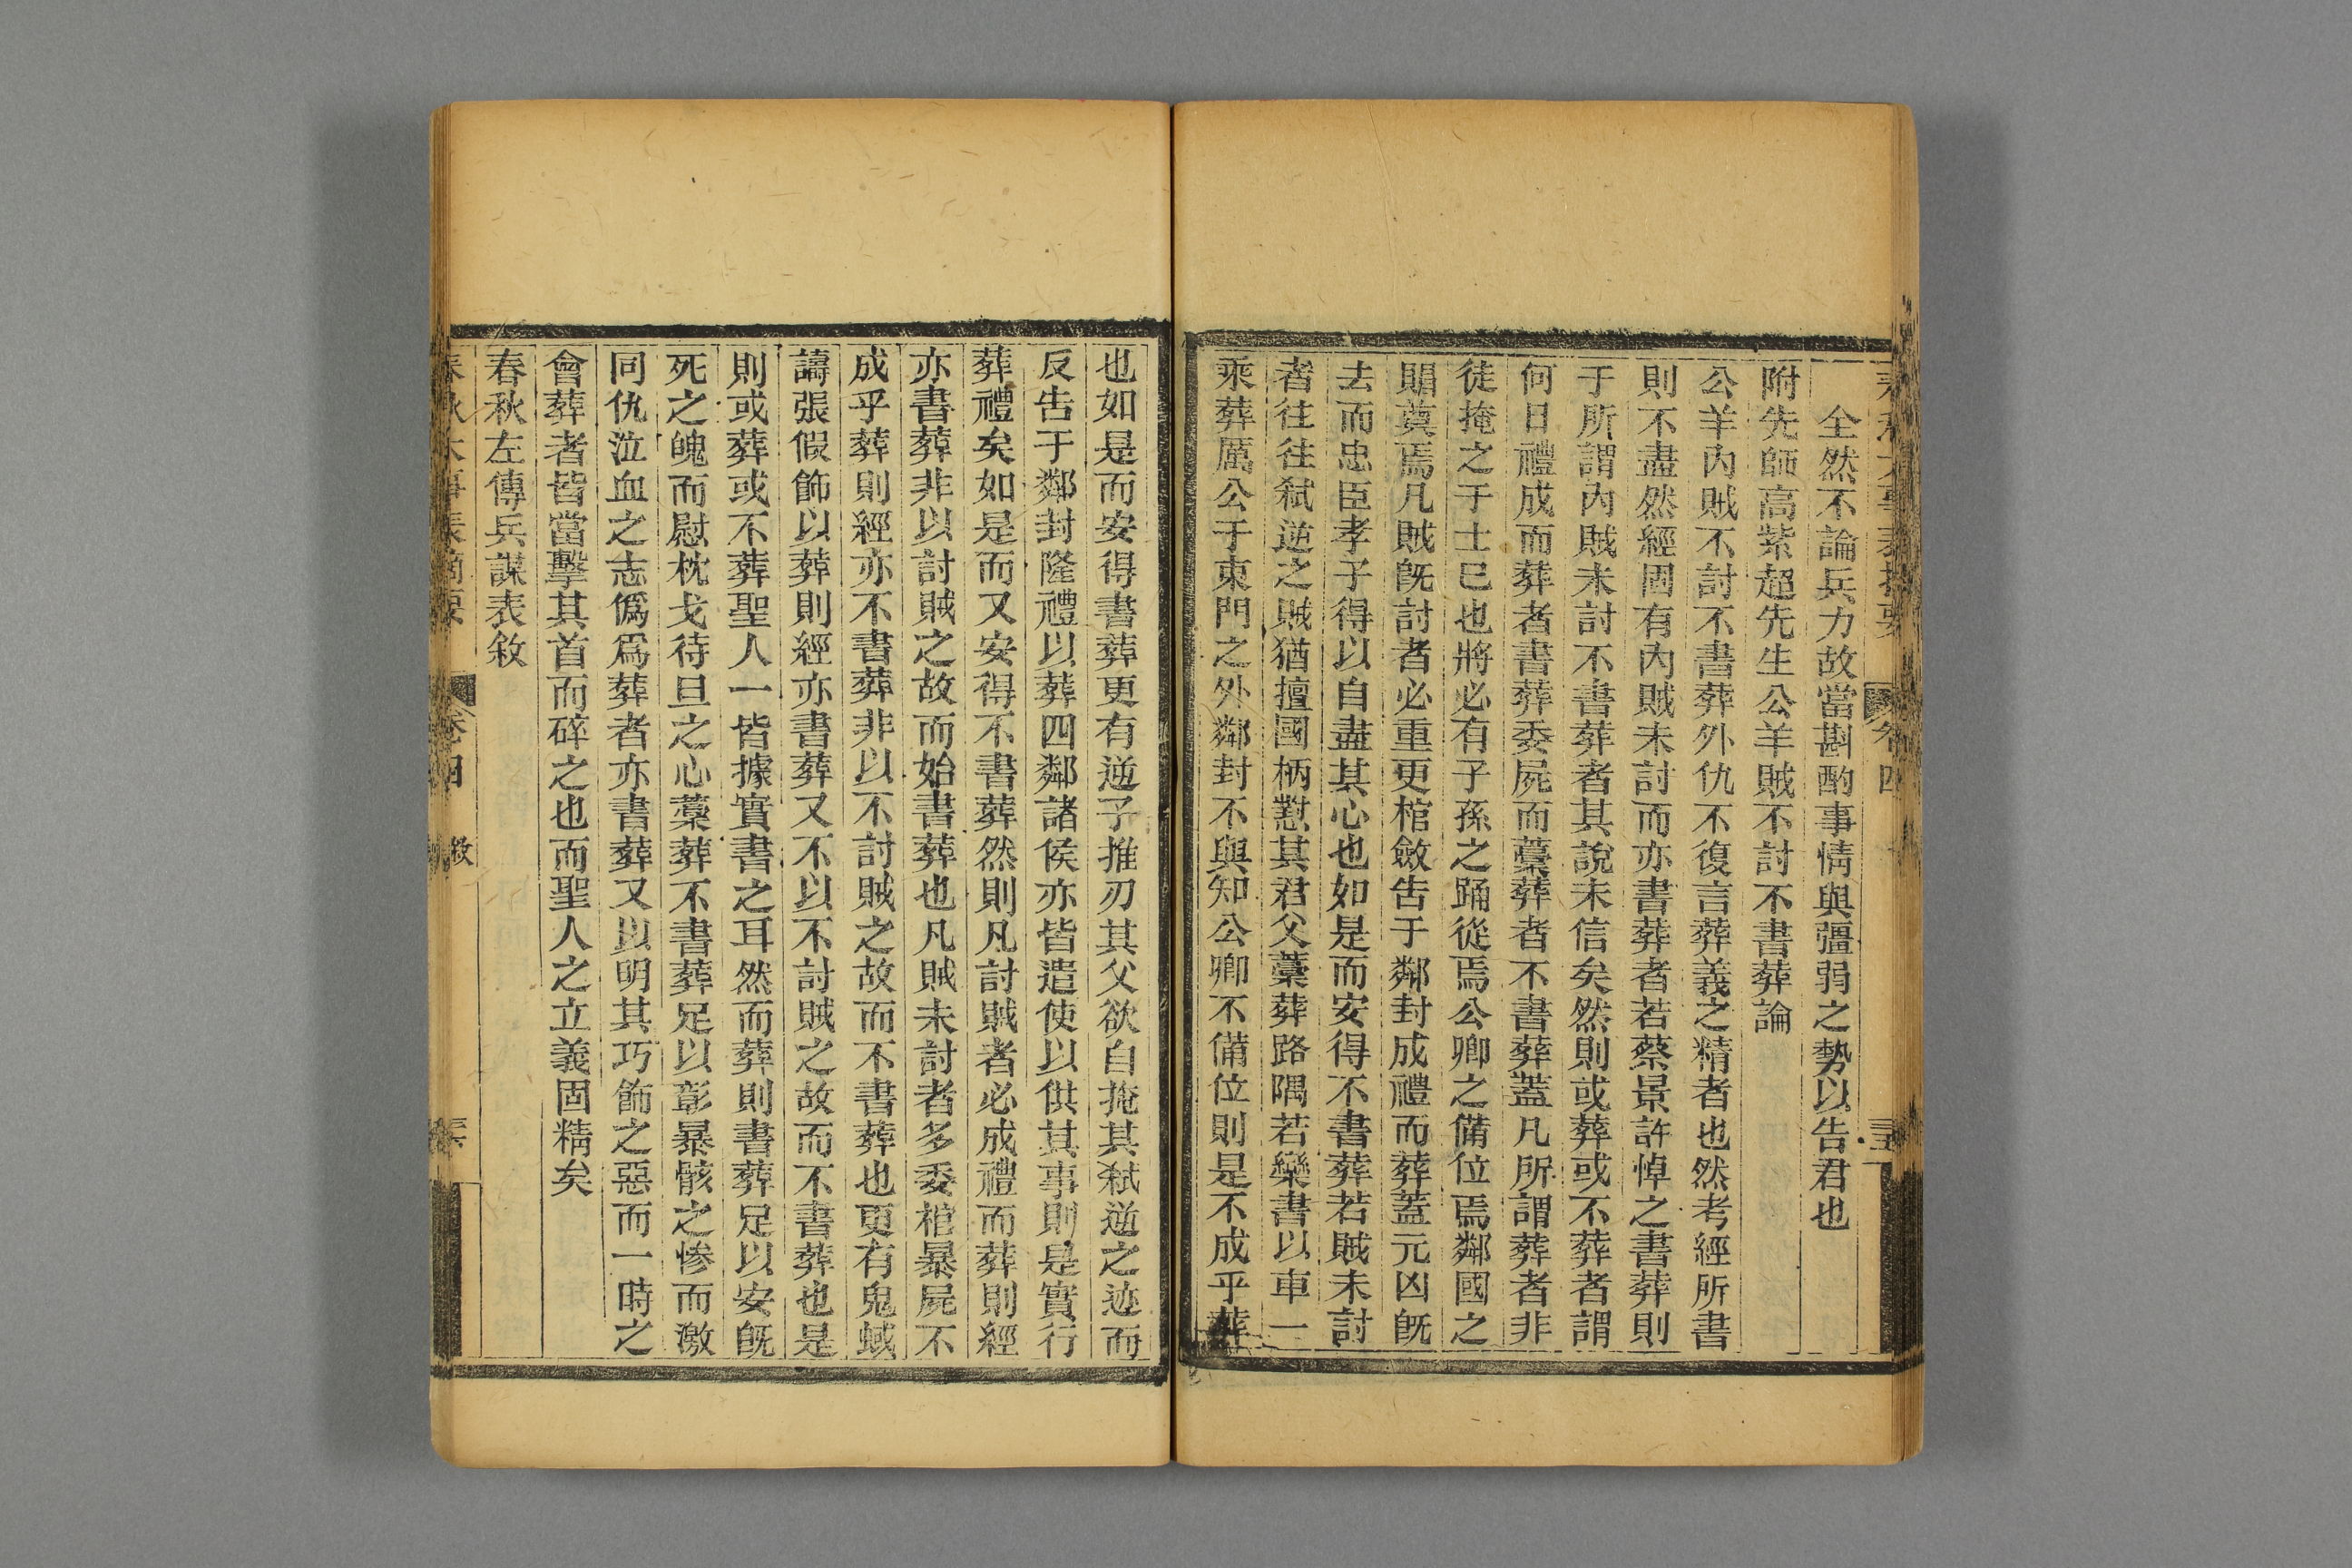 全然不論兵力故當斟酌事情與彊弱之勢以告君也
附先師高紫超先生公羊賊不討不書葬論
公羊內賊不討不書葬外仇不復言葬義之精者也然考經所書
則不盡然經固有內賊未討而亦書葬者若蔡景許悼之書葬則
于所謂內賊未討不書葬者其說未信矣然則或葬或不葬者謂
何曰禮成而葬者書葬委屍而藁葬者不書葬蓋凡所謂葬者非
徒掩之于土已也將必有子孫之踊從焉公卿之備位焉鄰國之
賵奠焉凡賊旣討者必重更棺斂告于鄰封成禮而葬蓋元凶旣
去而忠臣孝子得以自盡其心也如是而安得不書葬若賊未討
者往往弑逆之賊猶擅國柄懟其君父藁葬路隅若欒書以車一
乘葬厲公于東門之外鄰封不與知公卿不備位則是不成乎葬
也如是而安得書葬更有逆子推刃其父欲自掩其弑逆之迹而
反告于鄰封隆禮以葬四鄰諸侯亦皆遣使以供其事則是實行
葬禮矣如是而又安得不書葬然則凡討賊者必成禮而葬則經
亦書葬非以討賊之故而始書葬也凡賊未討者多委棺暴屍不
成乎葬則經亦不書葬非以不討賊之故而不書葬也更有鬼蜮
譸張假飾以葬則經亦書葬又不以不討賊之故而不書葬也是
則或葬或不葬聖人一皆據實書之耳然而葬則書葬足以安旣
死之魄而慰枕戈待旦之心藁葬不書葬足以彰暴骸之慘而激
同仇泣血之志僞爲葬者亦書葬又以明其巧飾之惡而一時之
會葬者皆當擊其首而碎之也而聖人之立義固精矣
春秋左傳兵謀表敘
卷四
敘